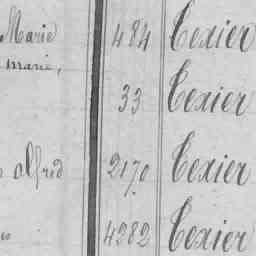 Marie 484 Texier
marie, 33 Texier
Alfred 2170 Texier
4282 Texier